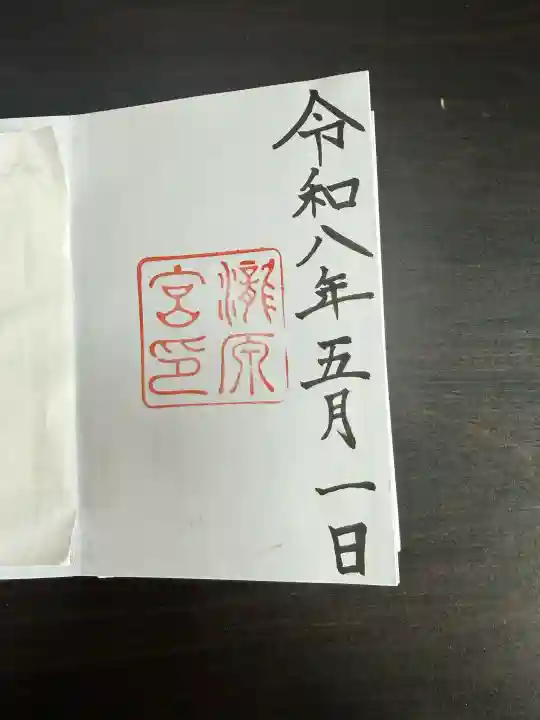 令和八年五月一日
瀧原
宮印